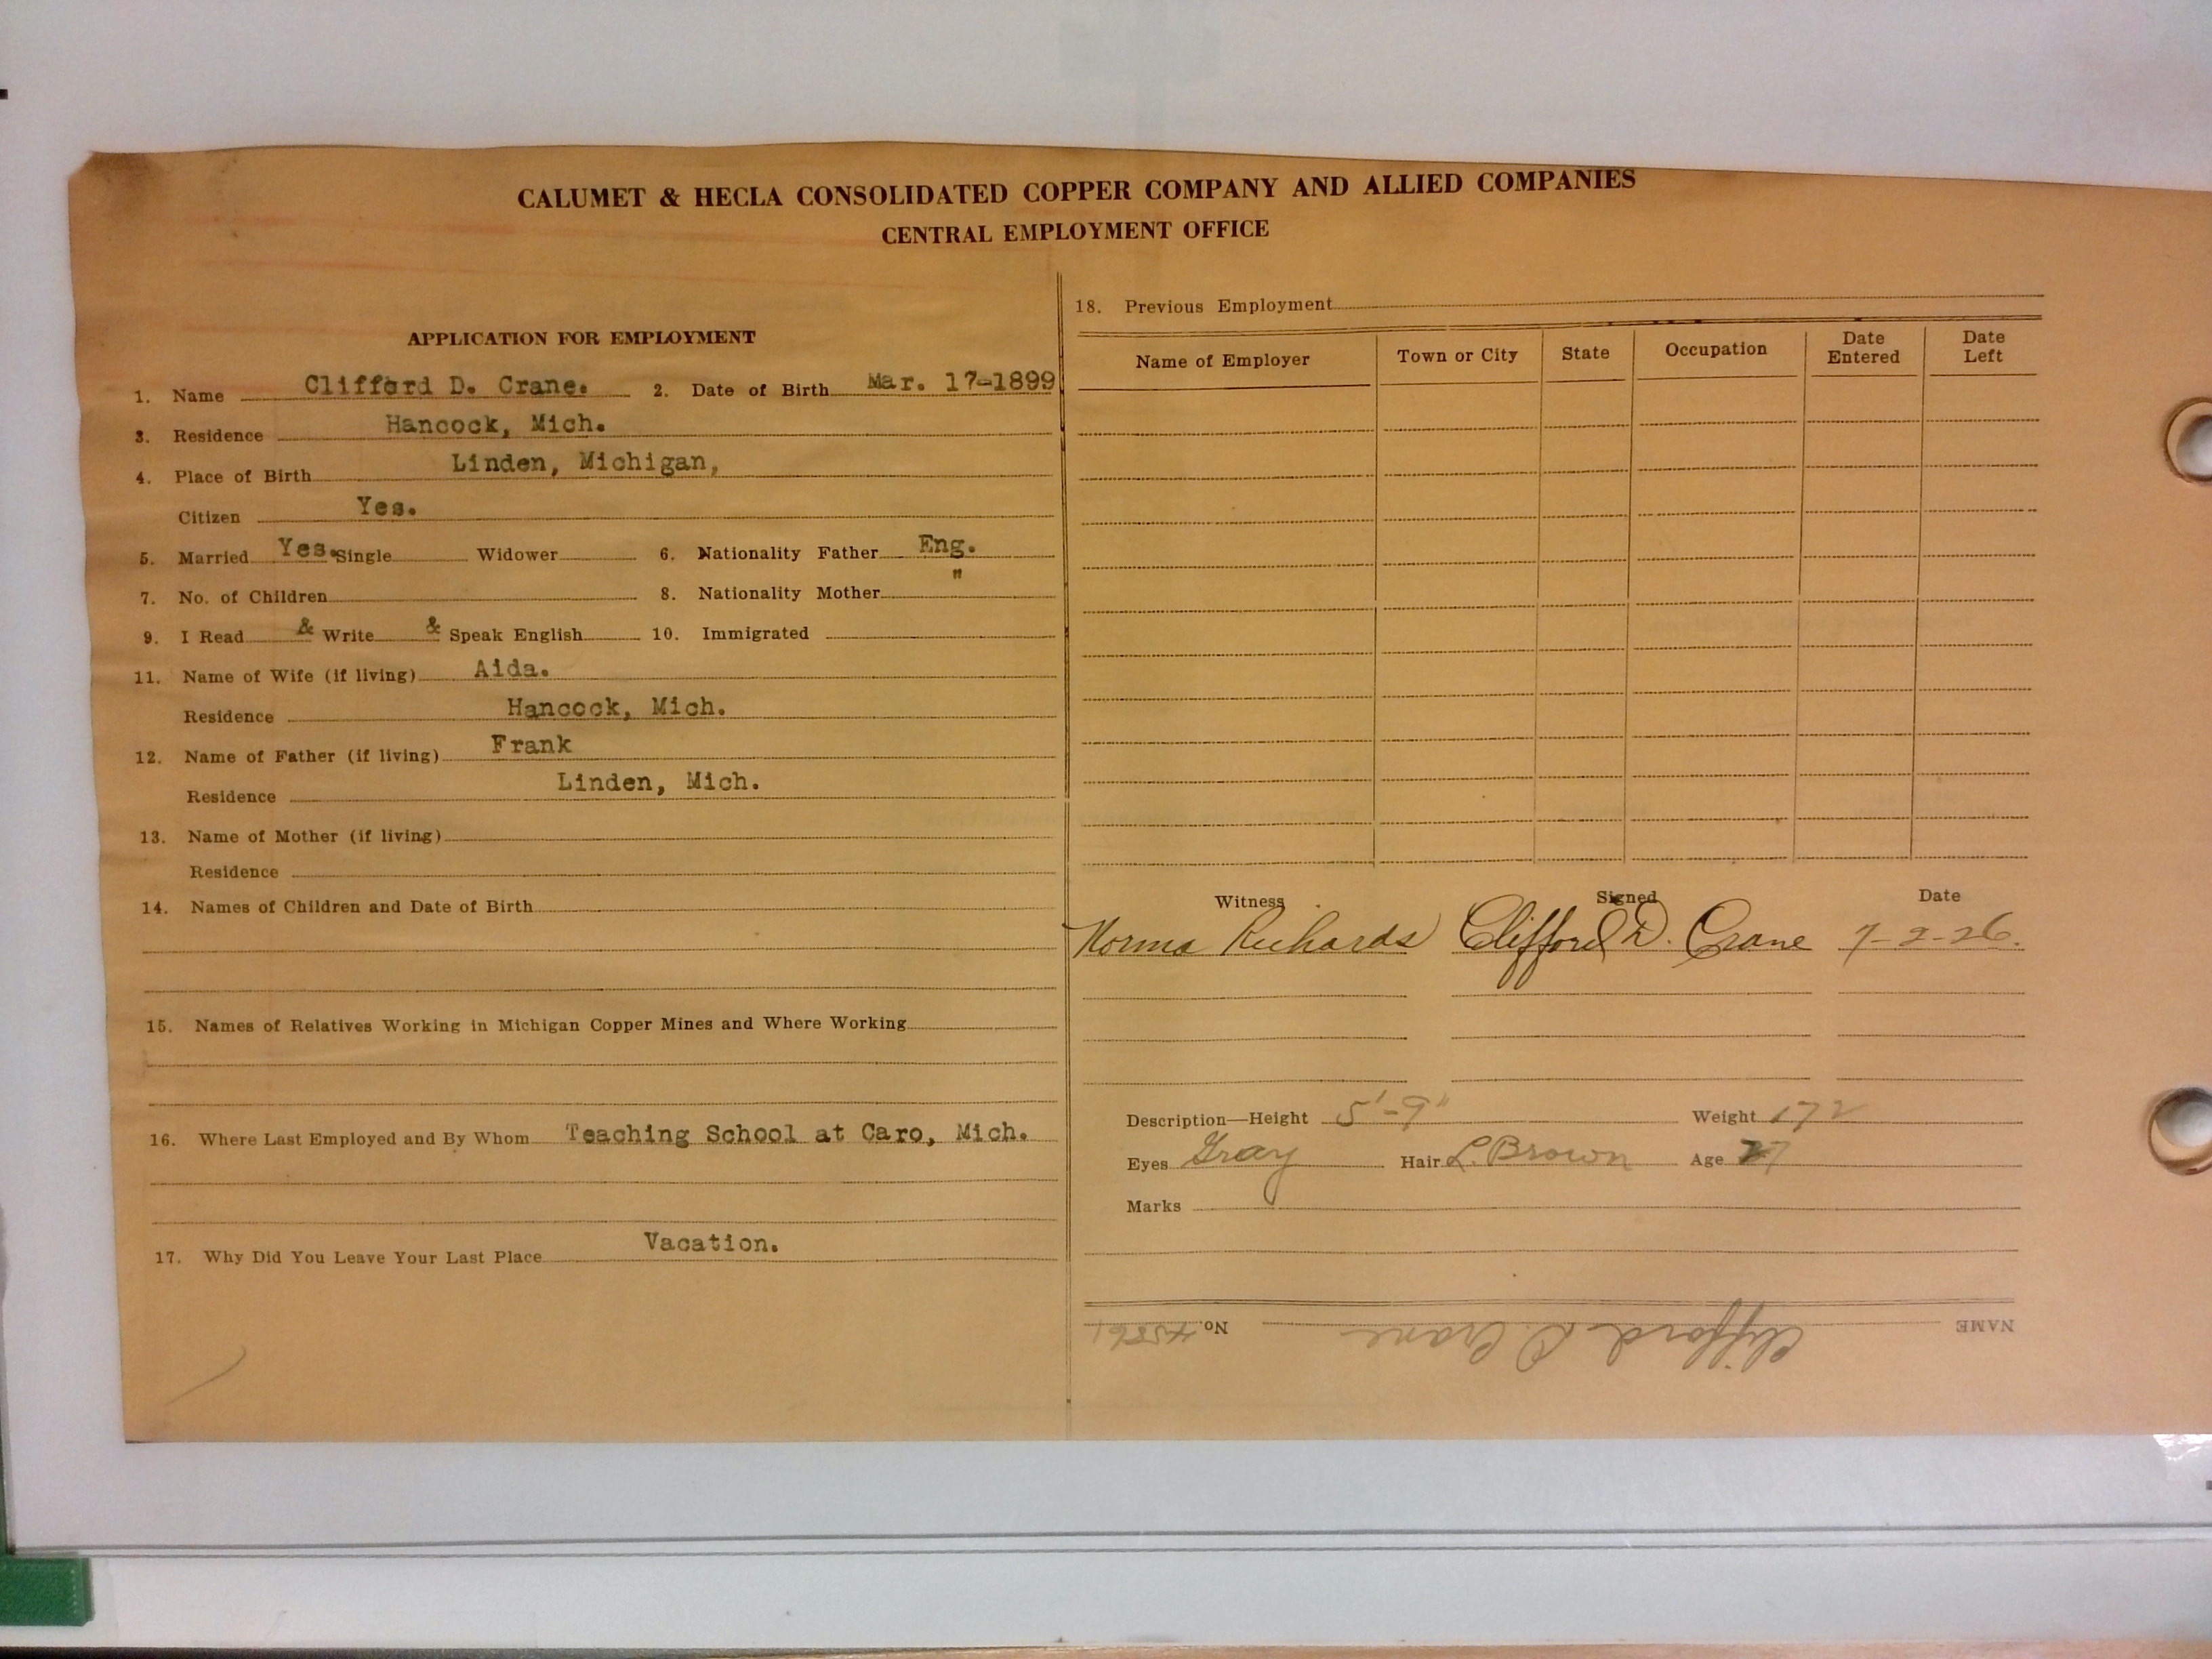 CALUMET & HECLA CONSOLIDATED COPPER COMPANY AND ALLIED COMPANIES
CENTRAL EMPLOYMENT OFFICE
APPLICATION FOR EMPLOYMENT
1. Name Clifford D. Crane. 2. Date of Birth Mar. 17-1899
3. Residence Hancock, Mich.
4. Place of Birth Linden, Michigan,
Citizen Yes.
5. Married Yes. Single Widower 6. Nationality Father Eng.
7. No. of Children 8. Nationality Mother "
9. I Read & Write & Speak English 10. Immigrated
11. Name of Wife (if living) Aida.
Residence Hancock, Mich.
12. Name of Father (if living) Frank
Residence Linden, Mich.
13. Name of Mother (if living)
Residence
14. Names of Children and Date of Birth
15. Names of Relatives Working in Michigan Copper Mines and Where Working
16. Where Last Employed and By Whom Teaching School at Caro, Mich.
17. Why Did You Leave Your Last Place Vacation.
18. Previous Employment
Name of Employer Town or City State Occupation Date Entered Date Left
Witness Signed Date
Norma Richards Clifford D. Crane 7-2-26.
Description—Height 5'-9" Weight 172
Eyes Gray Hair L. Brown Age 27
Marks
NAME Clifford D. Crane No.